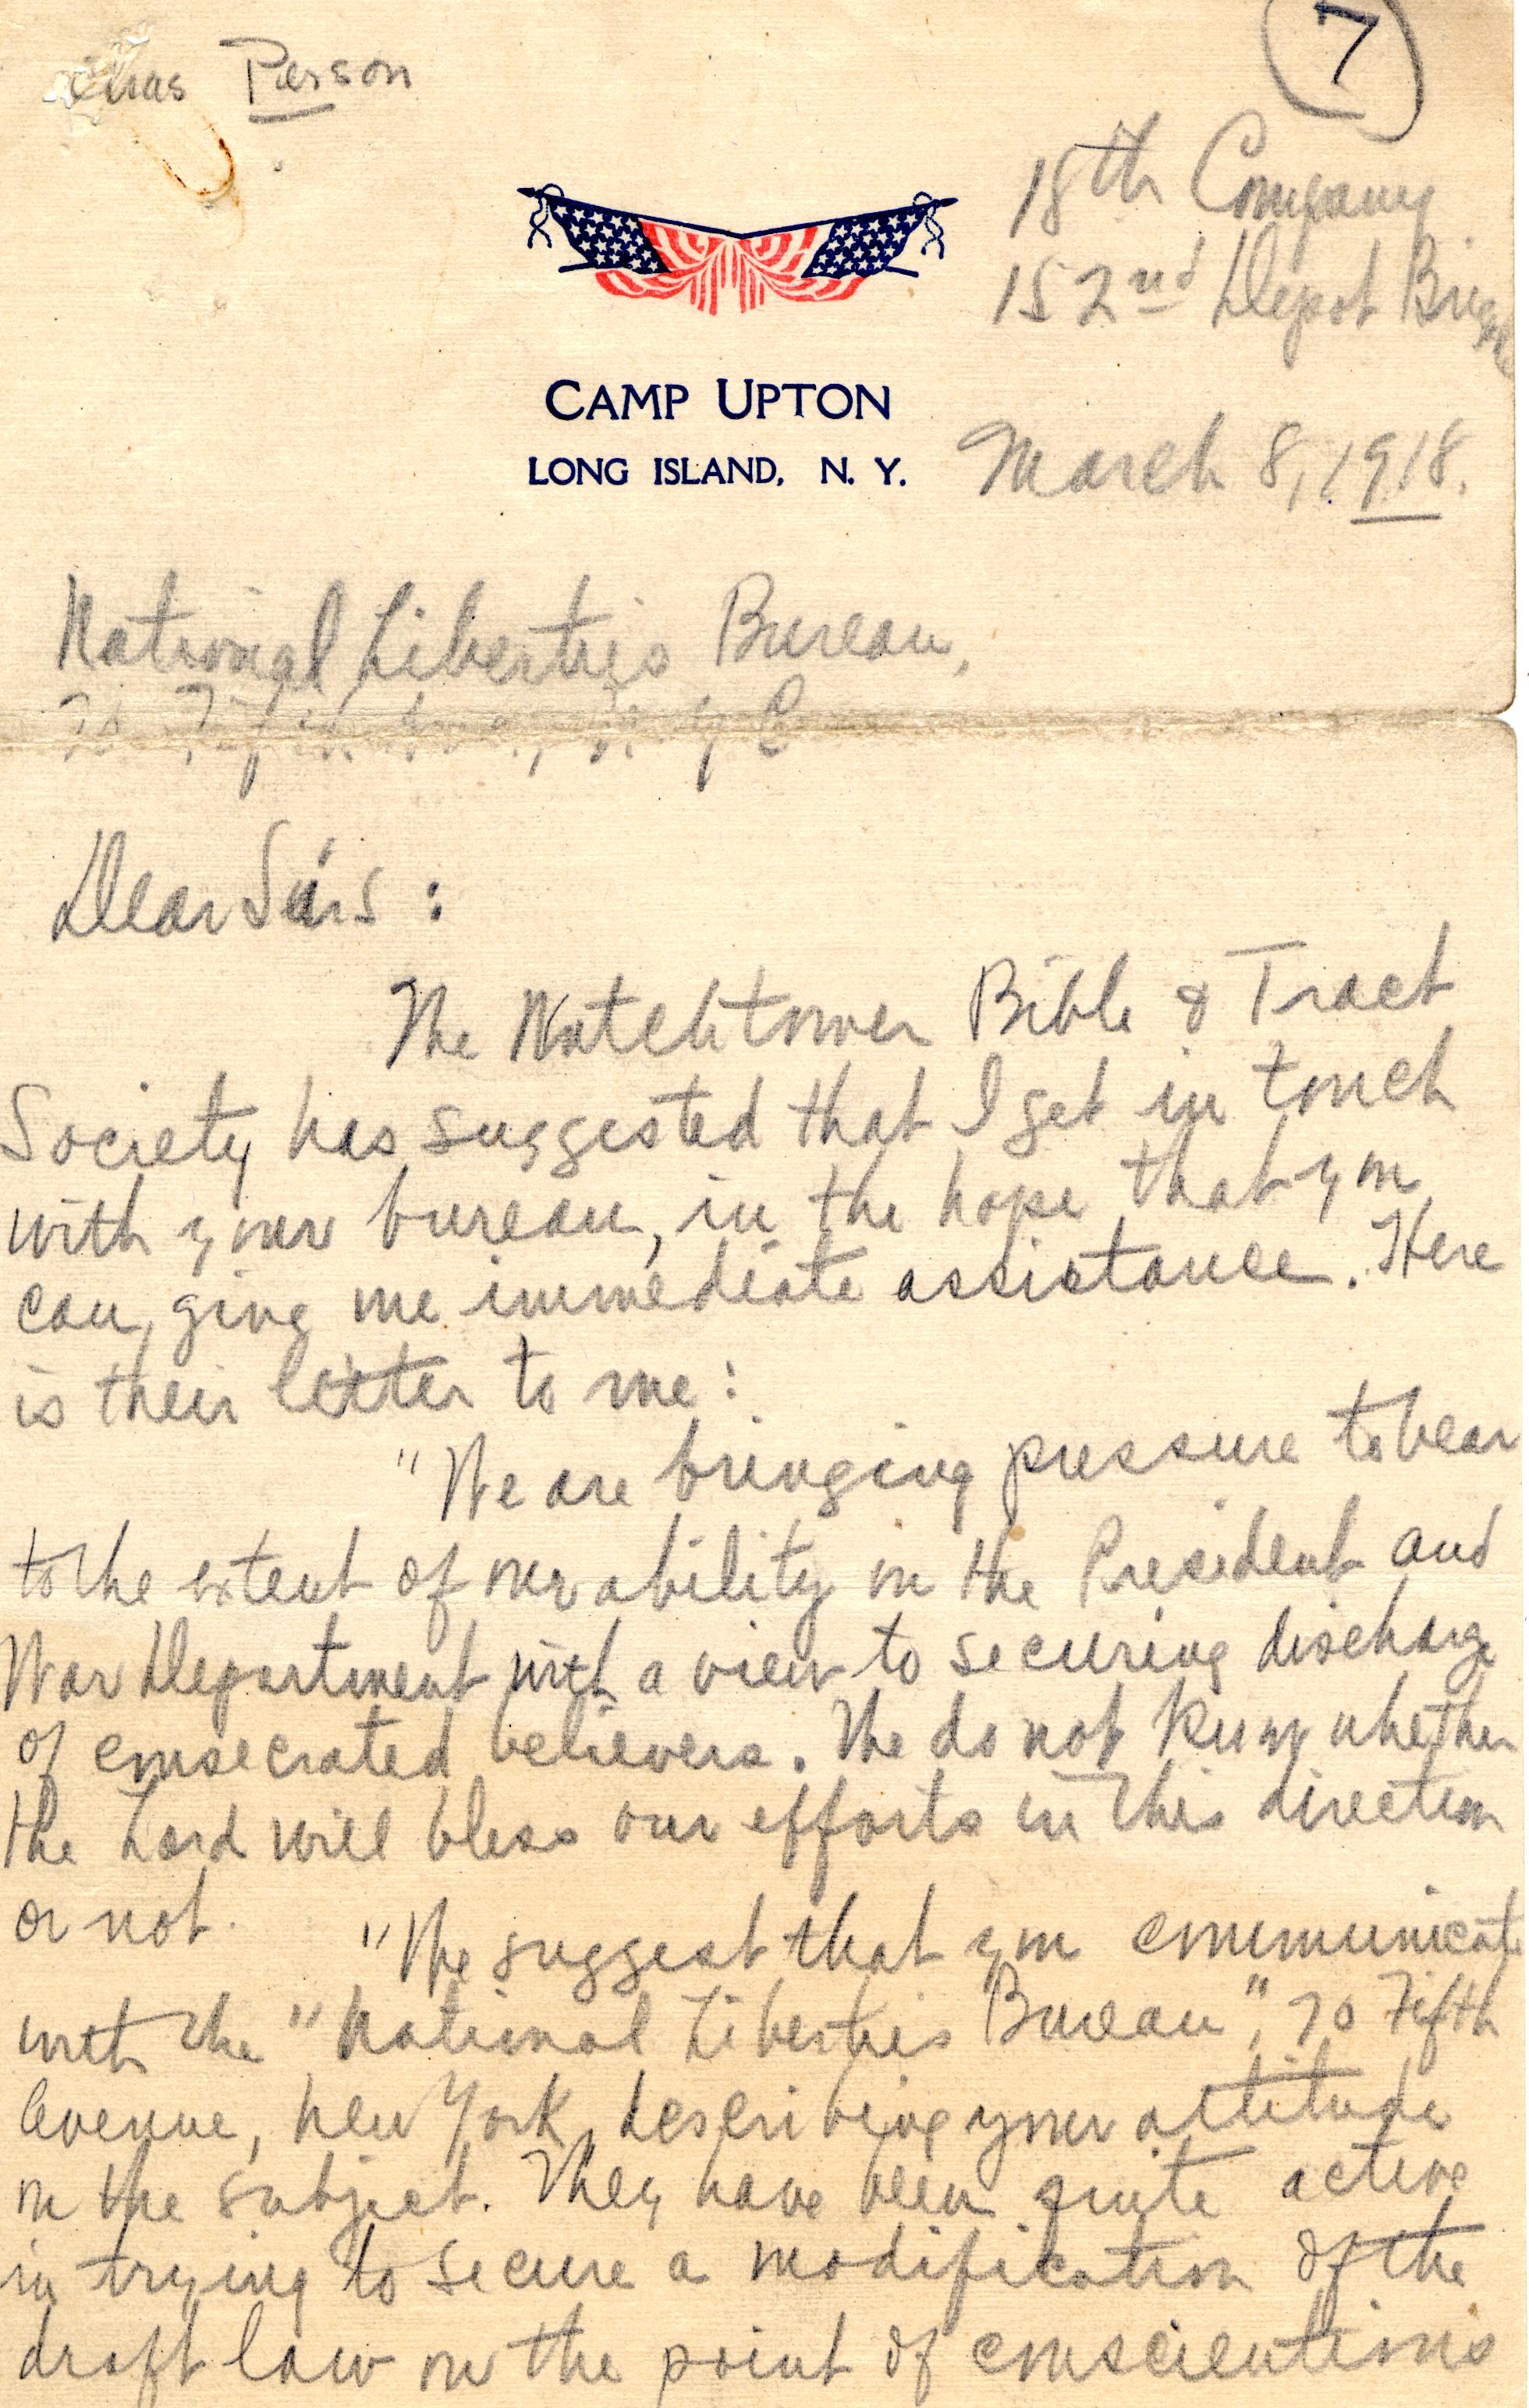 Chas Pierson
7
18th Company
152nd Depot Brigade
CAMP UPTON
LONG ISLAND, N. Y.
March 8, 1918.
National Liberties Bureau,
70 Fifth Ave., N Y C
Dear Sirs:
The Watchtower Bible & Tract
Society has suggested that I get in touch
with your bureau, in the hope that you
can give me immediate assistance. Here
is their letter to me:
"We are bringing pressure to bear
to the extent of our ability on the President and
War Department with a view to securing discharge
of consecrated believers. We do not know whether
the Lord will bless our efforts in this direction
or not.
"We suggest that you communicate
with the "National Liberties Bureau", 70 Fifth
Avenue, New York, describing your attitude
on the subject. They have been quite active
in trying to secure a modification of the
draft law on the point of conscientious